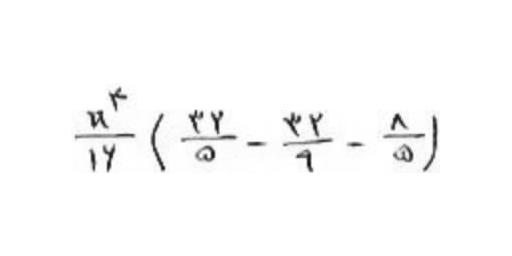 a^۴/۱۶ ( ۳۲/۵ - ۳۲/۹ - ۸/۵ )